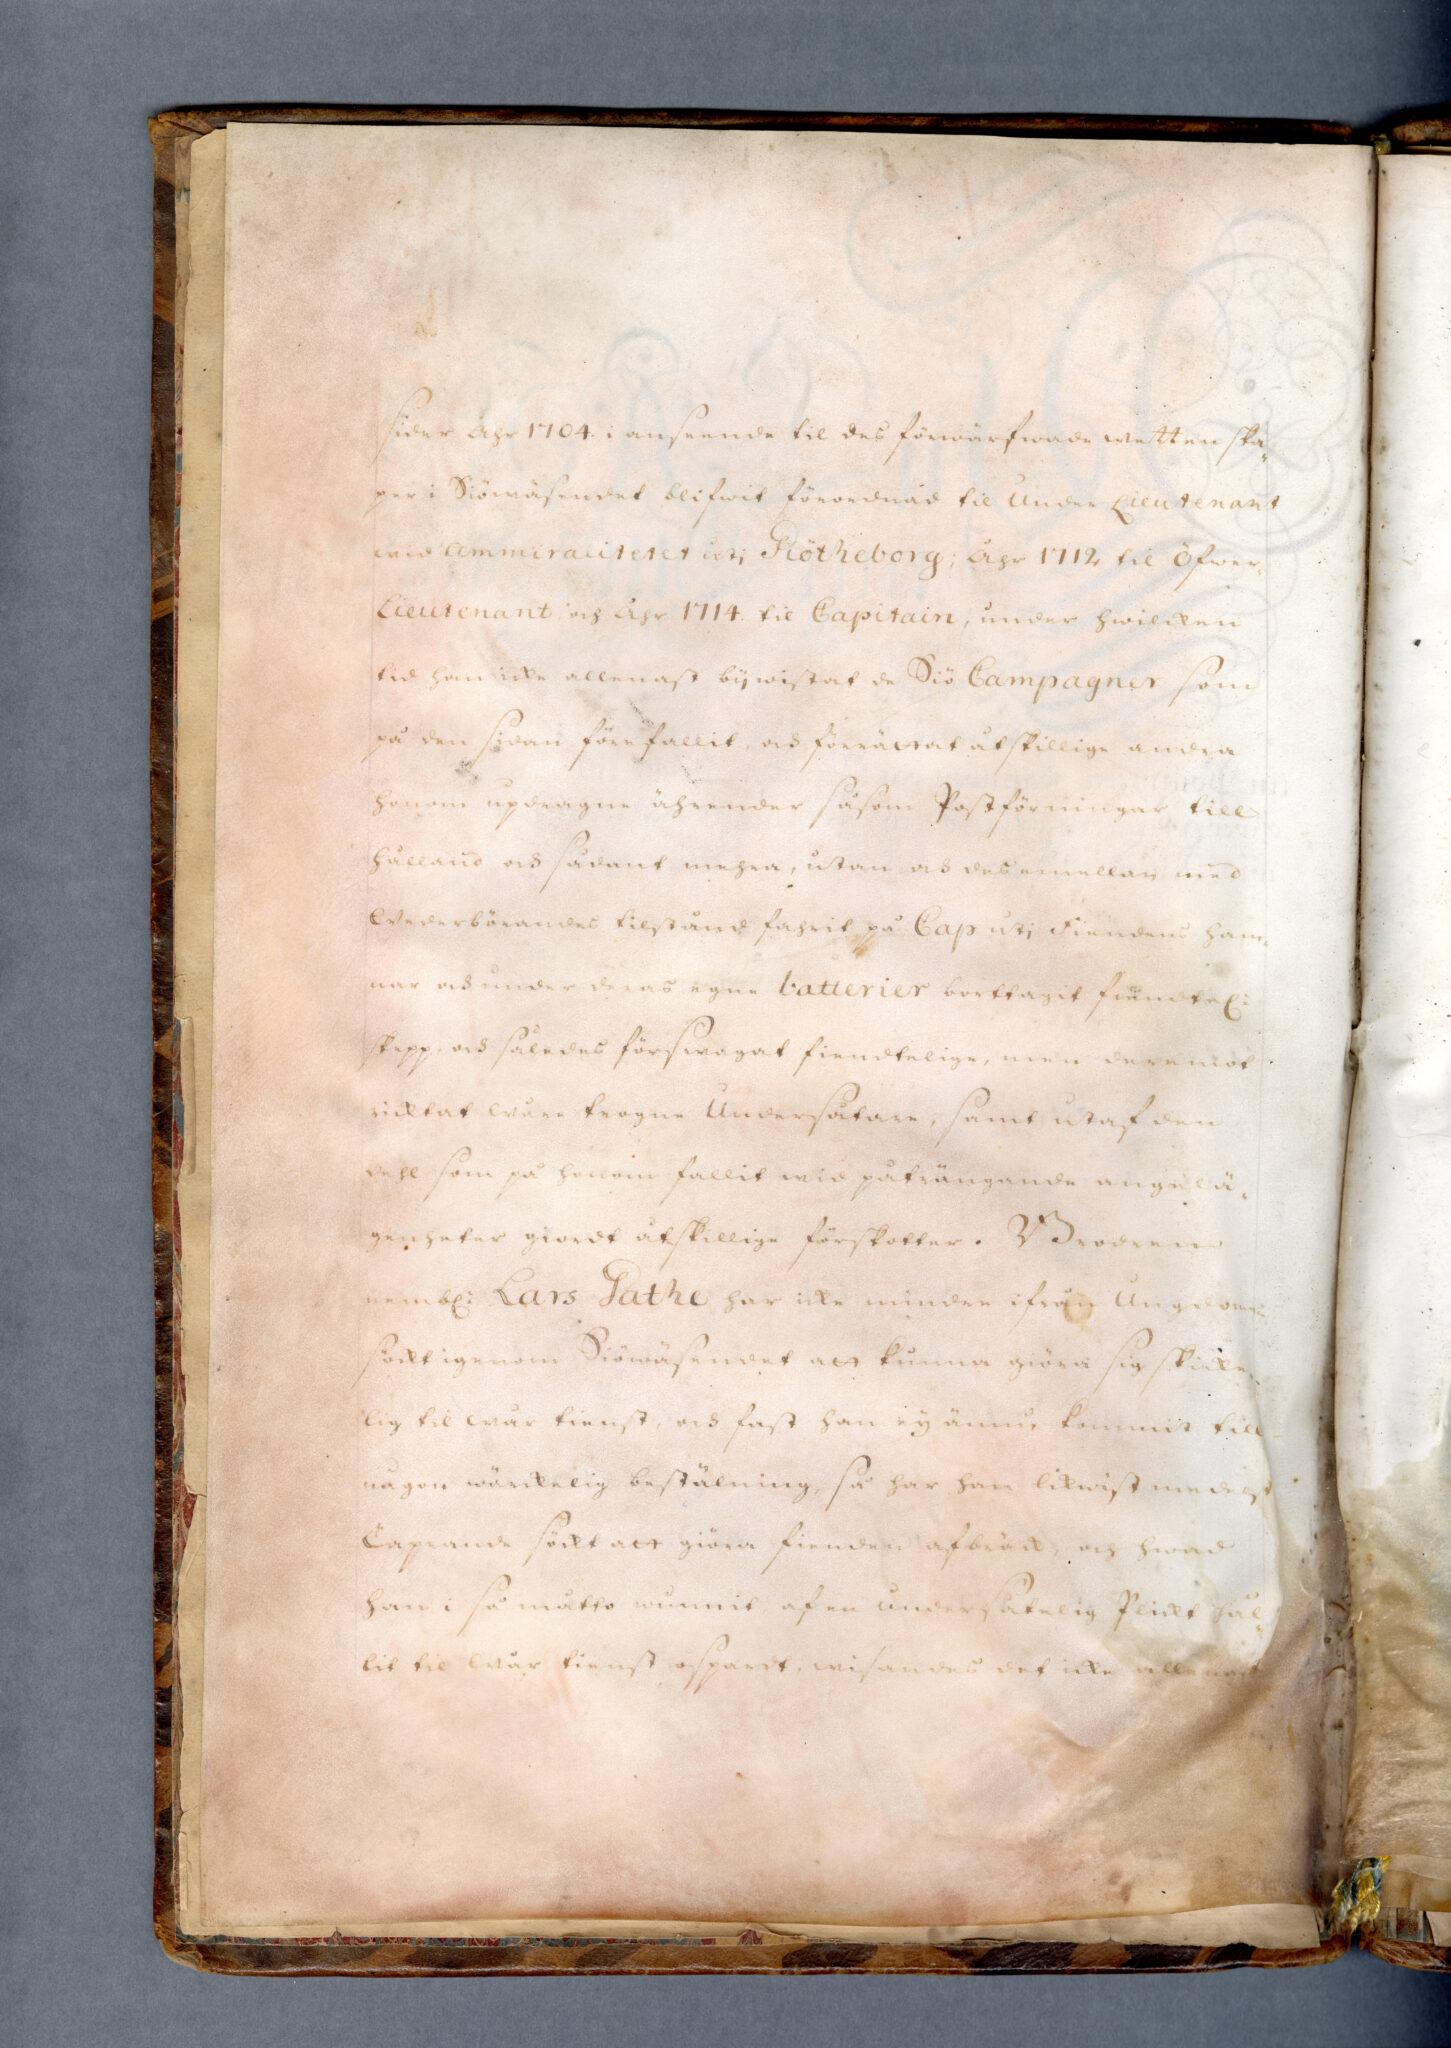 sider Åhr 1704. i anseende til des förwärfwade wettenska„
per i Siöwäsendet blifwit förordnad til Under Lieutenant
wid Ammiralitetet uti Giötheborg; Åhr 1712 til Öfwer„
Lieutenant och Åhr 1714. til Capitain, under hwilcken
tid han icke allenast bijwistat de Siö Campagner som
på den sidan förefallit, och förrättat åtskillige andra
honom updragne ährender såsom Postförningar till
Hålland och sådant mehra, utan och des emellan med
Wederbörandes tilstånd fahrit på Cap uti Fiendens ham„
nar och under deras egne batterier borttagit fiendtel:
skepp, och således förswagat fiendtelige, men deremot
ricktat Wåre trogne Undersåtare, samt utaf den
dehl som på honom fallit wid påträngande angelä„
genheter giordt åtskillige förskotter. Brodren
nembl: Lars Gathe har icke mindre ifrån Ungdomen
söckt igenom Siöwäsendet att kunna giöra sig skicke„
lig til Wår tienst, och fast han ey ännu kommit till
någon wärckelig bestälning, så har han likwist medelst
Caprande sökt att giöra fienden afbräck, och hwad
han i så måtto wunnit af en undersåtelig Plickt hål„
lit til Wår tienst ospardt, wisandes det icke allenast